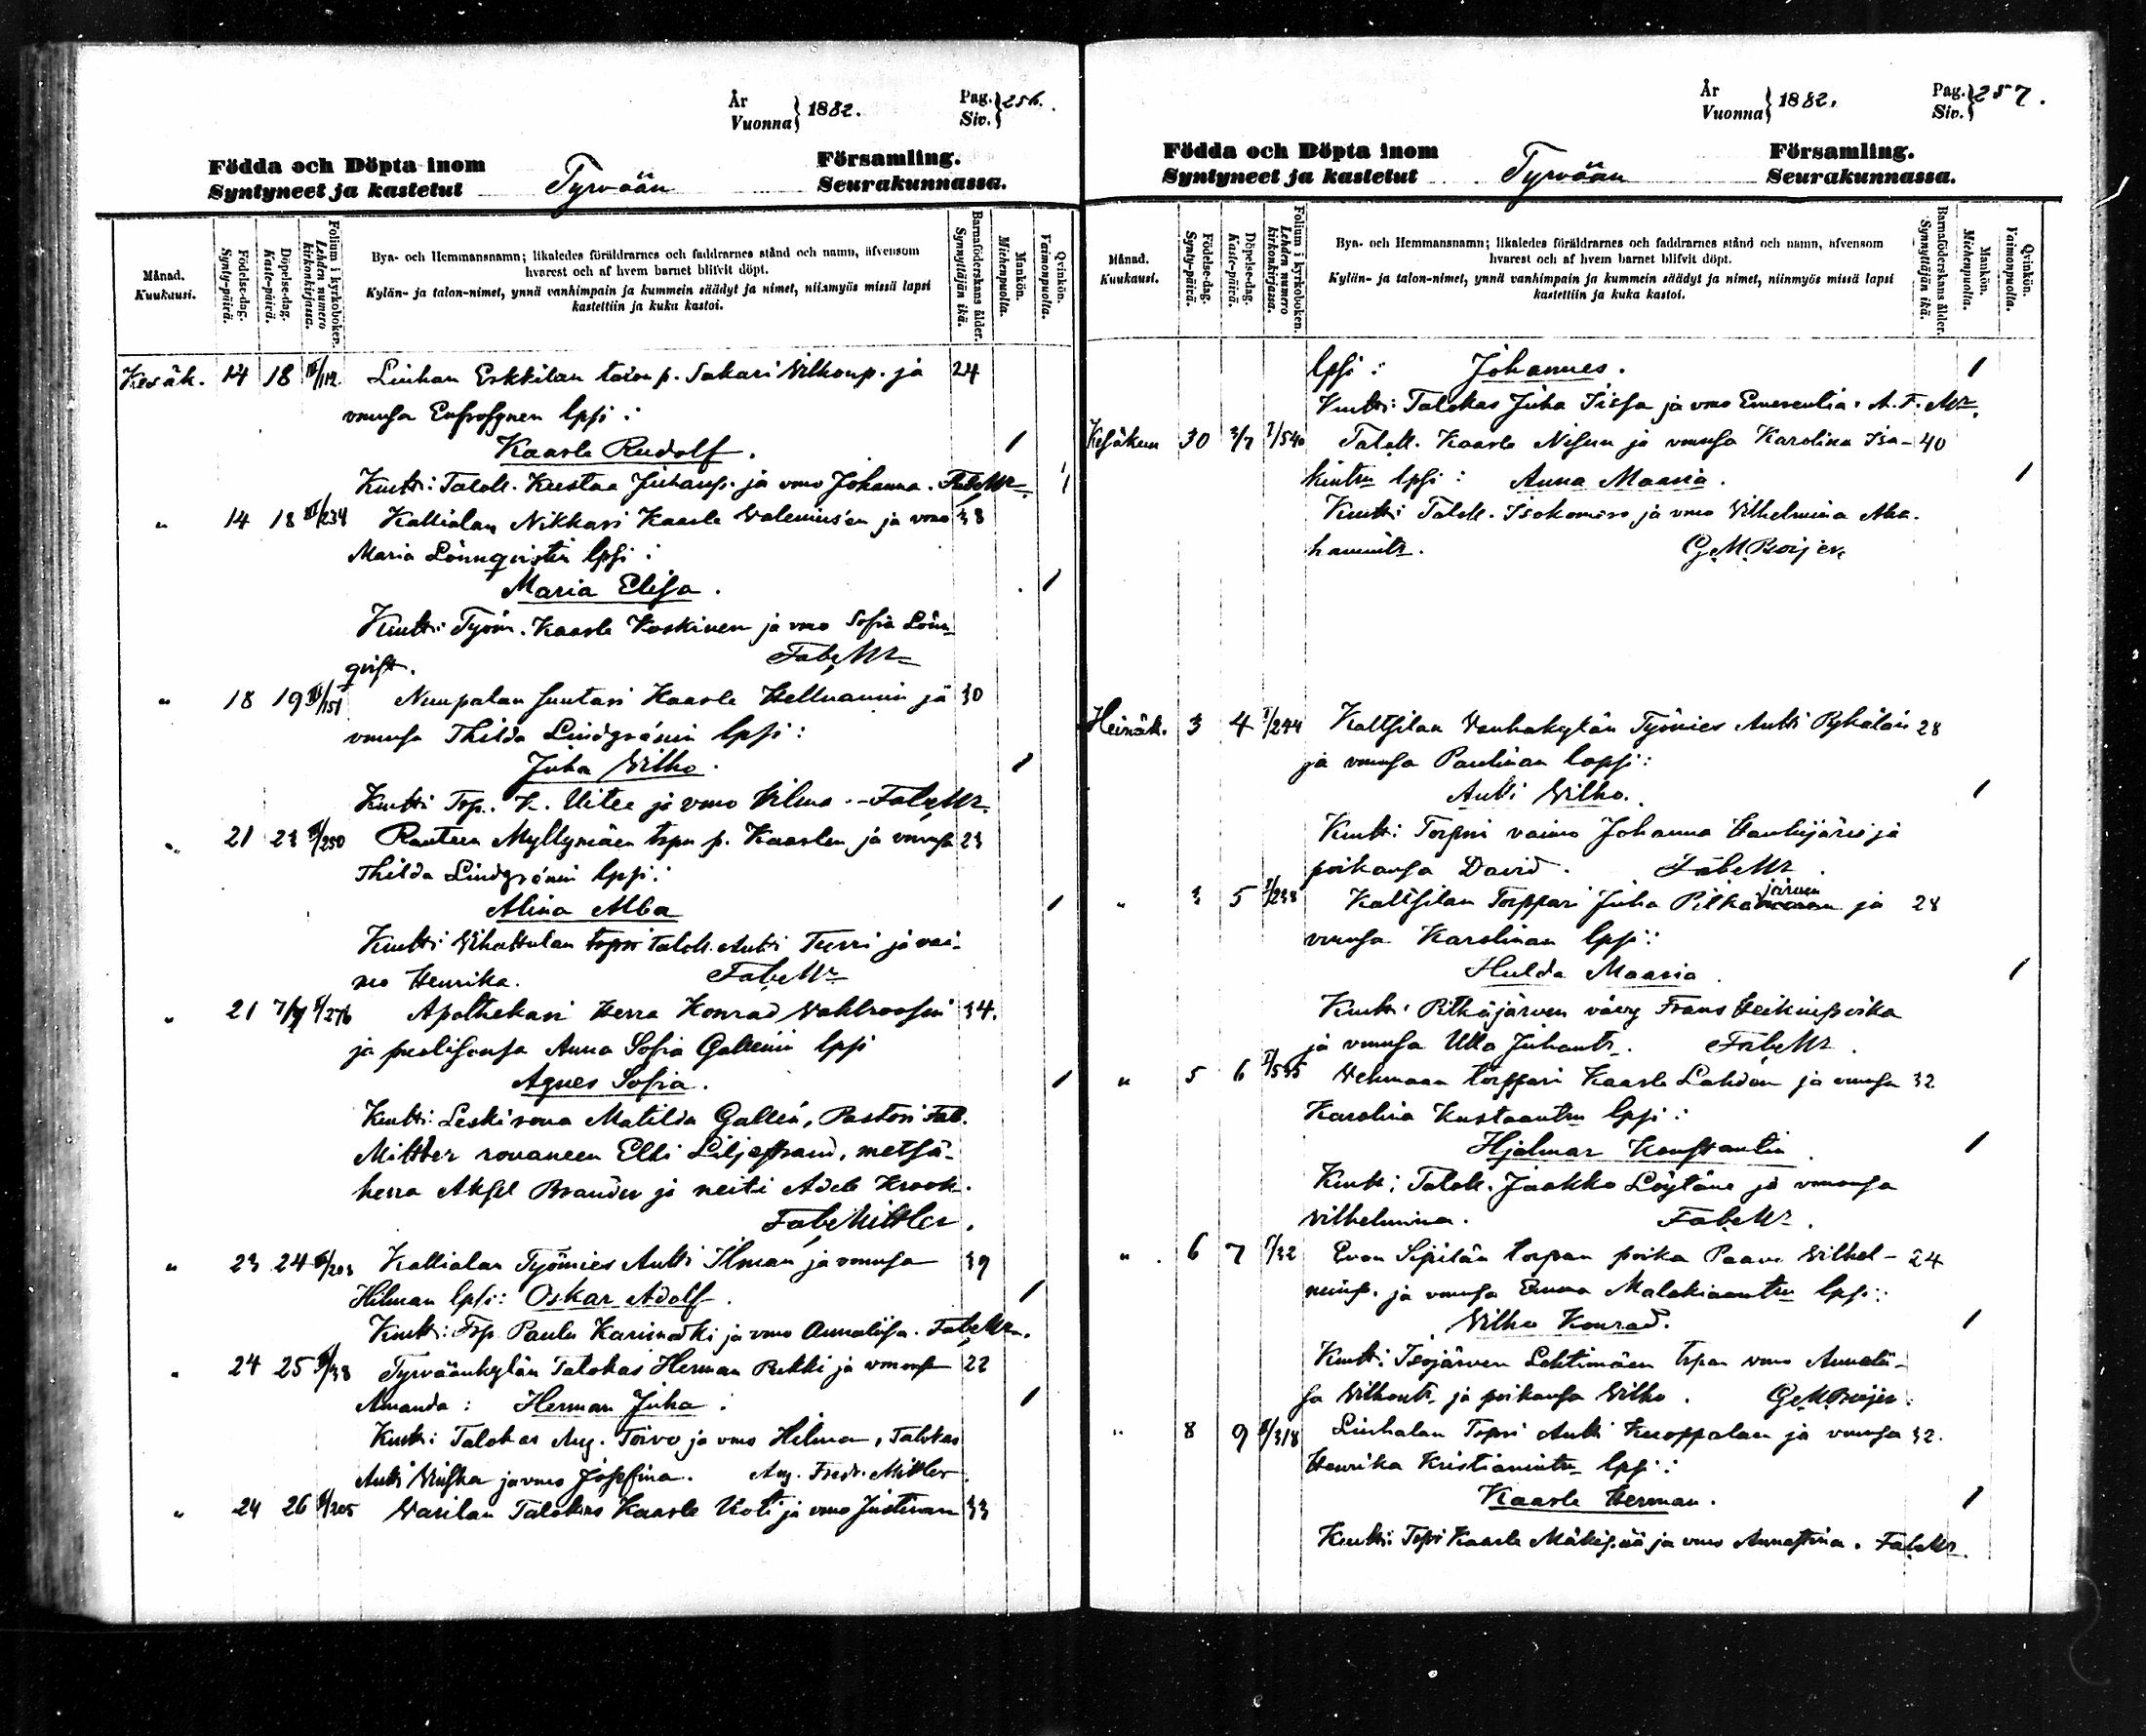 År
Vuonna } 1882.
Pag.
Siv. } 256.
Födda och Döpta inom
Syntyneet ja kastetut
Tyrvään
Församling.
Seurakunnassa.
Månad.
Kuukausi.
Födelse-dag.
Synty-päivä.
Döpelse-dag.
Kaste-päivä.
Folium i kyrkoboken.
Lehden numero kirkonkirjassa.
Bya- och Hemmansnamn; likaledes föräldrarnes och faddrarnes stånd och namn, äfvensom
hvarest och af hvem barnet blifvit döpt.
Kylän- ja talon-nimet, ynnä vanhimpain ja kummein säädyt ja nimet, niinmyös missä lapsi
kastettiin ja kuka kastoi.
Barnaföderskans ålder.
Synnyttäjän ikä.
Mankön.
Miehenpuolta.
Qvinkön.
Vaimonpuolta.
Kesäk. 14 18 III/112. Liuhan Eskkilan talon p. Sakari Wilhonp. ja 24
vmnsa Eufrosynen lpsi:
Kaarle Rudolf. 1
Kmtti: Talok. Kustaa Juhanp. ja vmo Johanna. Fab. Mr
" 14 18 III/234 Kallialan Nikkari Kaarle Waleniusen ja vmo 38
Maria Lönnqvistin lpsi:
Maria Elisa. 1
Kmtti: Työm. Kaarle Koskinen ja vmo Sofia Lönn
qvist. Fab. Mr
" 18 19 III/151 Nuupalan Suutari Kaarle Hellmanin ja 30
vmnsa Thilda Lindgrénin lpsi:
Juha Wilho. 1
Kmtti Trp. K. Uitee ja vmo Wilma. - Fab. Mr.
" 21 23 /250 Rauteen Myllymäen trpn p. Kaarlen ja vmnsa 23
Thilda Lindgrénin lpsi:
Alina Alba 1
Kmtti Wihattulan Talok. Antti Turri ja vai-
mo Henrika. Fab. Mr
" 21 7/7 /276 Apothekari Herra Konrad Wahlroosin 34.
ja puolisonsa Anna Sofia Gallenin lpsi
Agnes Sofia. 1
Kmtti: Leskirouva Matilda Gallén, Pastori Fab.
Mittler rouvaneen Elli Liljestrand, metsä-
herra Aksel Brander ja neiti Adele Krook.
Fab. Mittler.
" 23 24 /203 Kallialan Työmies Antti Ilman ja vmnsa 39
Hilman lpsi: Oskar Adolf. 1
Kmtti: Trp. Paulu Karimäki ja vmo Annaliisa. Fab. Mr.
" 24 25 /38 Tyrväänkylän Talokas Herman Pukki ja vmonsa 22
Amanda: Herman Juha. 1
Kmtti: Talokas Aug. Toivo ja vmo Hilma, Talokas
Antti ja vmo Josefina. Aug. Fredr. Mittler.
" 24 26 /205 Warilan Talokas Kaarle Koti ja vmo Justinan 33
År
Vuonna } 1882.
Pag.
Siv. } 257.
Födda och Döpta inom
Syntyneet ja kastetut
Tyrvään
Församling.
Seurakunnassa.
Månad.
Kuukausi.
Födelse-dag.
Synty-päivä.
Döpelse-dag.
Kaste-päivä.
Folium i kyrkoboken.
Lehden numero kirkonkirjassa.
Bya- och Hemmansnamn; likaledes föräldrarnes och faddrarnes stånd och namn, äfvensom
hvarest och af hvem barnet blifvit döpt.
Kylän- ja talon-nimet, ynnä vanhimpain ja kummein säädyt ja nimet, niinmyös missä lapsi
kastettiin ja kuka kastoi.
Barnaföderskans ålder.
Synnyttäjän ikä.
Mankön.
Miehenpuolta.
Qvinkön.
Vaimonpuolta.
lpsi: Johannes. 1
Kmtti: Talokas Juha Iissa ja vmo Emerentia. A. F. Mr.
Kesäkuu 30 2/7 I/540 Talok. Kaarle Nisun ja vmnsa Karolina Isa- 40
kintrn lpsi: Anna Maaria. 1
Kmtti Talok. Isokomero ja vmo Wilhelmina Aha-
hamntr. G. M. Boijer.
Heinäk. 3 4 I/244 Kaltsilan Vanhakylän Työmies Antti Pykälän 28
ja vmnsa Paulinan lapsi:
Antti Wilho. 1
Kmtti: Torpni vaimo Johanna Haukijärvi ja
poikansa David. Fab. Mr.
" 3 5 I/238 Kaltsilan Torppari Juha Pitkäjärven ja 28
vmnsa Karolinan lpsi:
Hulda Maaria. 1
Kmtti: Pitkäjärven vävy Frans Heikinpoika
ja vmnsa Ulla Juhantr. Fab. Mr.
" 5 6 /535 Vehmaan torppari Kaarle Lahden ja vmnsa 32
Karolina Kustaantrn lpsi:
Hjalmar Konstantin. 1
Kmtti: Talok. Jaakko Löytäne ja vmonsa
Wilhelmina. Fab. Mr.
" 6 7 /32 Evon Sipilän torpan poika Paavo Wilhel- 24
minp. ja vmnsa Emma Malakiaantrn lpsi:
Wilho Konrad. 1
Kmtti: Isojärven Lehtimäen trpan vmo Annalii-
sa Wilhontr. ja poikansa Wilho. G. M. Boijer.
" 8 9 /318 Liuhalan Trpri Antti Kuoppalan ja vmnsa 32.
Henrika Kristianintrn lpsi:
Kaarle Herman. 1
Kmtti: Trpri Kaarle Mäkipää ja vmo Annastiina. Fab. Mr.